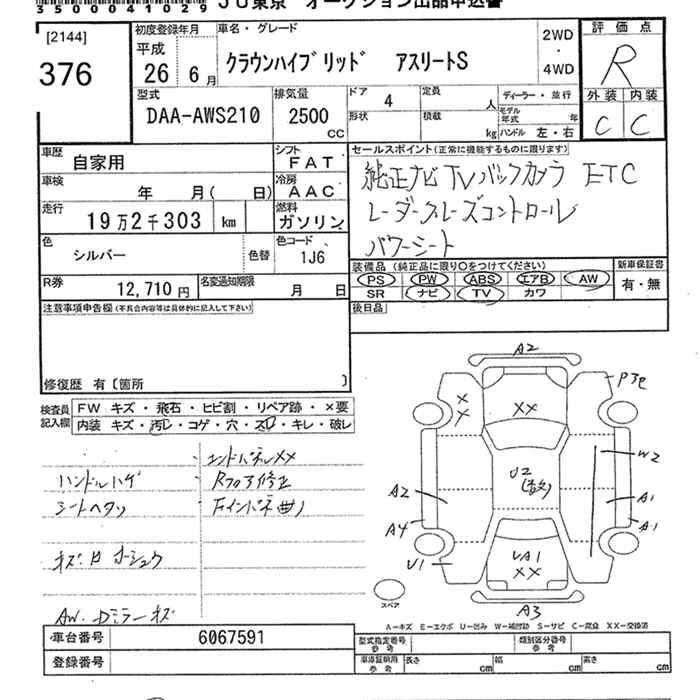 3500041029 JU東京 オークション出品申込書
[2144]
376
初度登録年月
平成
26 6月
車名・グレード
クラウンハイブリッド アスリートS
2WD
・
4WD
評価点
R
外装 内装
C C
型式
DAA-AWS210
排気量
2500
CC
ドア 4
形状
定員 人
積載 kg
ディーラー・並行
モデル年式 年
ハンドル 左・右
車歴 自家用
シフト FAT
車検 年 月( 日)
冷房 AAC
走行 19万2千303 km
燃料 ガソリン
色 シルバー
色替
色コード 1J6
R券 12,710円
名変通知期限 月 日
セールスポイント(正常に機能するものに限ります)
純正ナビ TV バックカメラ ETC
レーダークルーズコントロール
パワーシート
装備品 (純正品に限り○をつけてください)
新車保証書
PS PW ABS エアB AW
有・無
SR ナビ TV カワ
後日品
注意事項申告欄(不具合内容等は具体的に記入して下さい)
修復歴 有〔箇所 〕
検査員記入欄
FW キズ・飛石・ヒビ割・リペア跡・×要
内装 キズ・汚レ・コゲ・穴・スレ・キレ・破レ
エンドパネルXX
ハンドルハゲ
Rフロア修正
シートヘタリ
Fインパネ曲り
AW.Dミラーキズ
A2
P3色
XX
XX
W2
U2
A2
A1
A4
A1
U1
UA1
XX
A3
スペア
A-キズ E-エクボ U-凹み W-補修跡 S-サビ C-腐食 XX-交換済
車台番号 6067591
登録番号
型式指定番号 参考
類別区分番号 参考
車庫証明用 参考
長さ cm
幅 cm
高さ cm